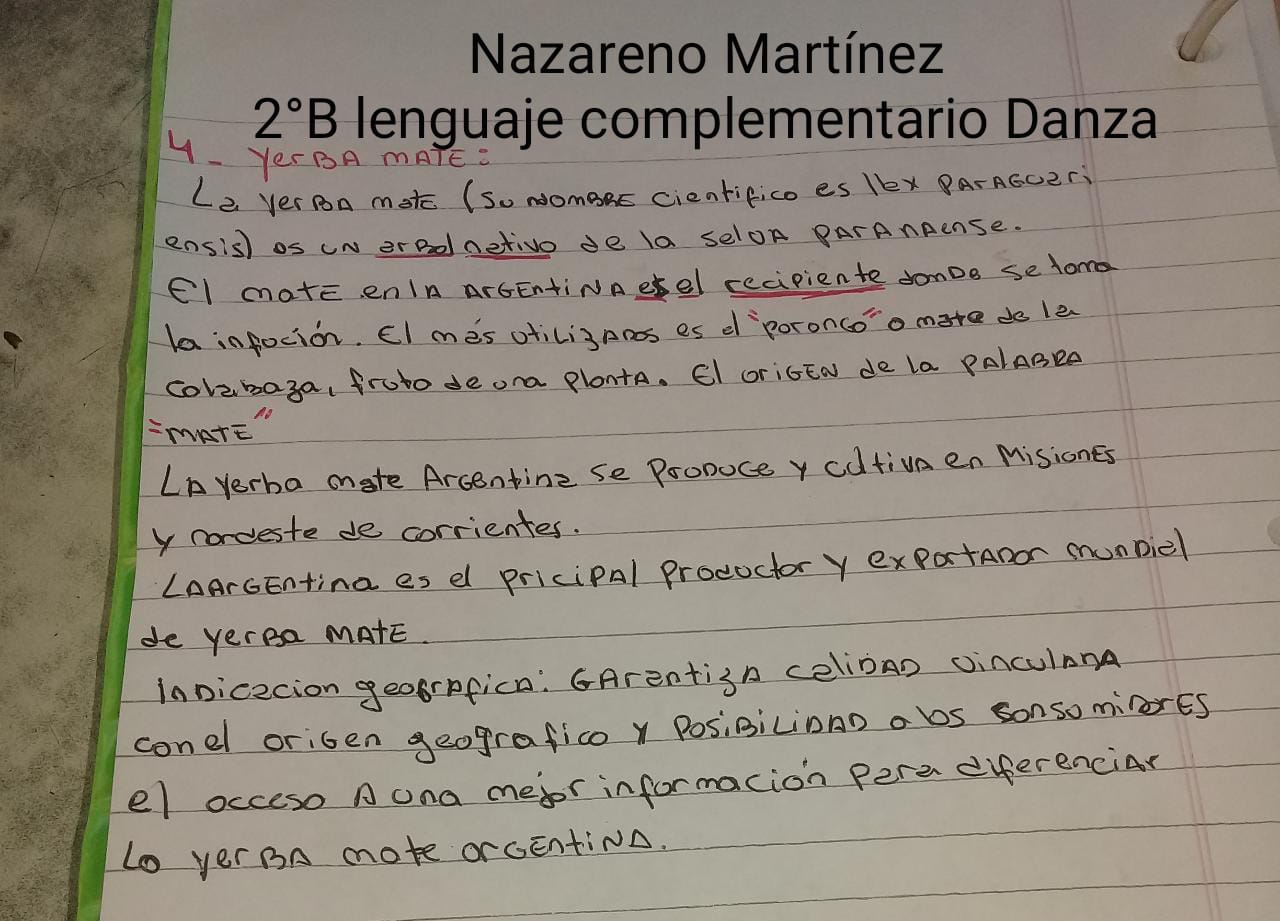 Nazareno Martínez
2°B lenguaje complementario Danza
4- YerBA MATE:
La yerba mate (su nombre cientifico es Ilex paraguari
ensis) es un arbol nativo de la selva paranaense.
El mate en la Argentina es el recipiente donde se toma
la infución. El más utilizados es el "porongo" o mate de la
calabaza, fruto de una planta. El origen de la palabra
"MATE"
La yerba mate Argentina se produce y cultiva en Misiones
y nordeste de corrientes.
La Argentina es el pricipal productor y exportador mundial
de yerba mate.
indicacion geografica: Garantiza calidad vinculada
con el origen geografico y posibilidad a los sonsumidores
el acceso a una mejor información para diferenciar
la yerba mate argentina.